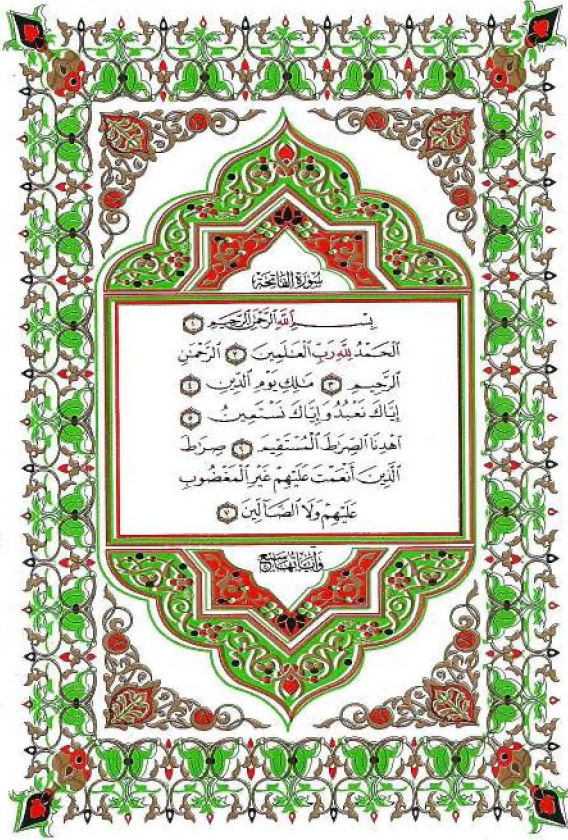 سُورَةُ الفَاتِحَةِ
بِسْمِ اللَّهِ الرَّحْمَٰنِ الرَّحِيمِ ١
الْحَمْدُ لِلَّهِ رَبِّ الْعَٰلَمِينَ ٢ الرَّحْمَٰنِ
الرَّحِيمِ ٣ مَٰلِكِ يَوْمِ الدِّينِ ٤
إِيَّاكَ نَعْبُدُ وَإِيَّاكَ نَسْتَعِينُ ٥
اهْدِنَا الصِّرَٰطَ الْمُسْتَقِيمَ ٦ صِرَٰطَ
الَّذِينَ أَنْعَمْتَ عَلَيْهِمْ غَيْرِ الْمَغْضُوبِ
عَلَيْهِمْ وَلَا الضَّالِّينَ ٧
وَآيَاتُهَا سَبْعٌ